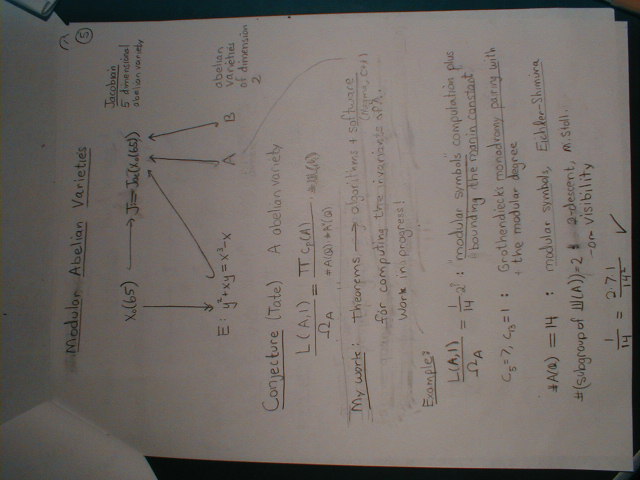 ⑤
Modular Abelian Varieties
X₀(65) → J = Jac(X₀(65)) Jacobian
5 dimensional
abelian variety
E: y² + xy = x³ - x A B abelian
varieties
of dimension
2
Conjecture (Tate) A abelian variety
L(A,1) / Ω_A = ∏ c_p(A) / #A(Q) · #A^(Q) · #Ш(A)
My work: theorems → algorithms + software
(Magma, C++)
for computing the invariants of A.
Work in progress!
Example:
L(A,1) / Ω_A = 1/14 : "modular symbols" computation plus
"bounding the manin constant"
C₅=7, C₁₃=1 : Grothendieck's monodromy pairing with
+ the modular degree
#A(Q) = 14 : modular symbols, Eichler-Shimura
#(subgroup of Ш(A))=2 : 2-descent, M. Stoll..
-or- visibility
1/14 = 2·7·1/14² ✓